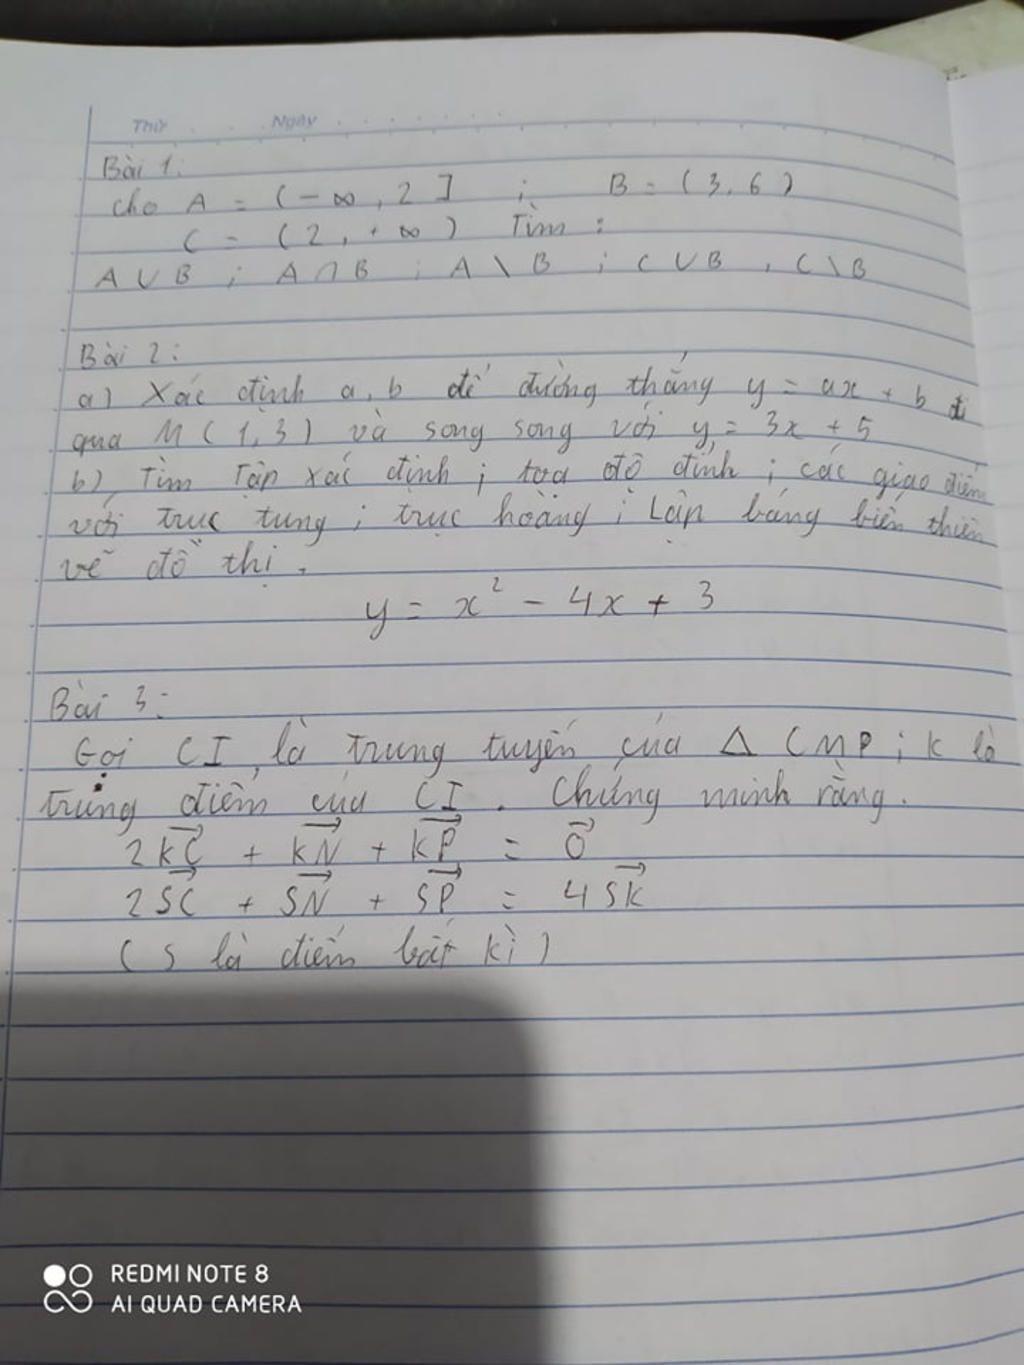 Thứ Ngày
Bài 1:
cho A = (-∞, 2] ; B = (3, 6)
C = (2, +∞) Tìm :
A ∪ B ; A ∩ B ; A \ B ; C ∪ B , C \ B
Bài 2:
a) Xác định a, b để đường thẳng y = ax + b đi
qua M(1,3) và song song với y = 3x + 5
b) Tìm Tập xác định ; tọa độ đỉnh ; các giao điểm
với trục tung ; trục hoàng ; Lập bảng biến thiên
vẽ đồ thị.
y = x² - 4x + 3
Bài 3:
Gọi CI là trung tuyến của Δ CMP ; K là
trung điểm của CI. Chứng minh rằng.
2KC⃗ + KN⃗ + KP⃗ = 0⃗
2SC⃗ + SN⃗ + SP⃗ = 4SK⃗
(S là điểm bất kì)
REDMI NOTE 8
AI QUAD CAMERA